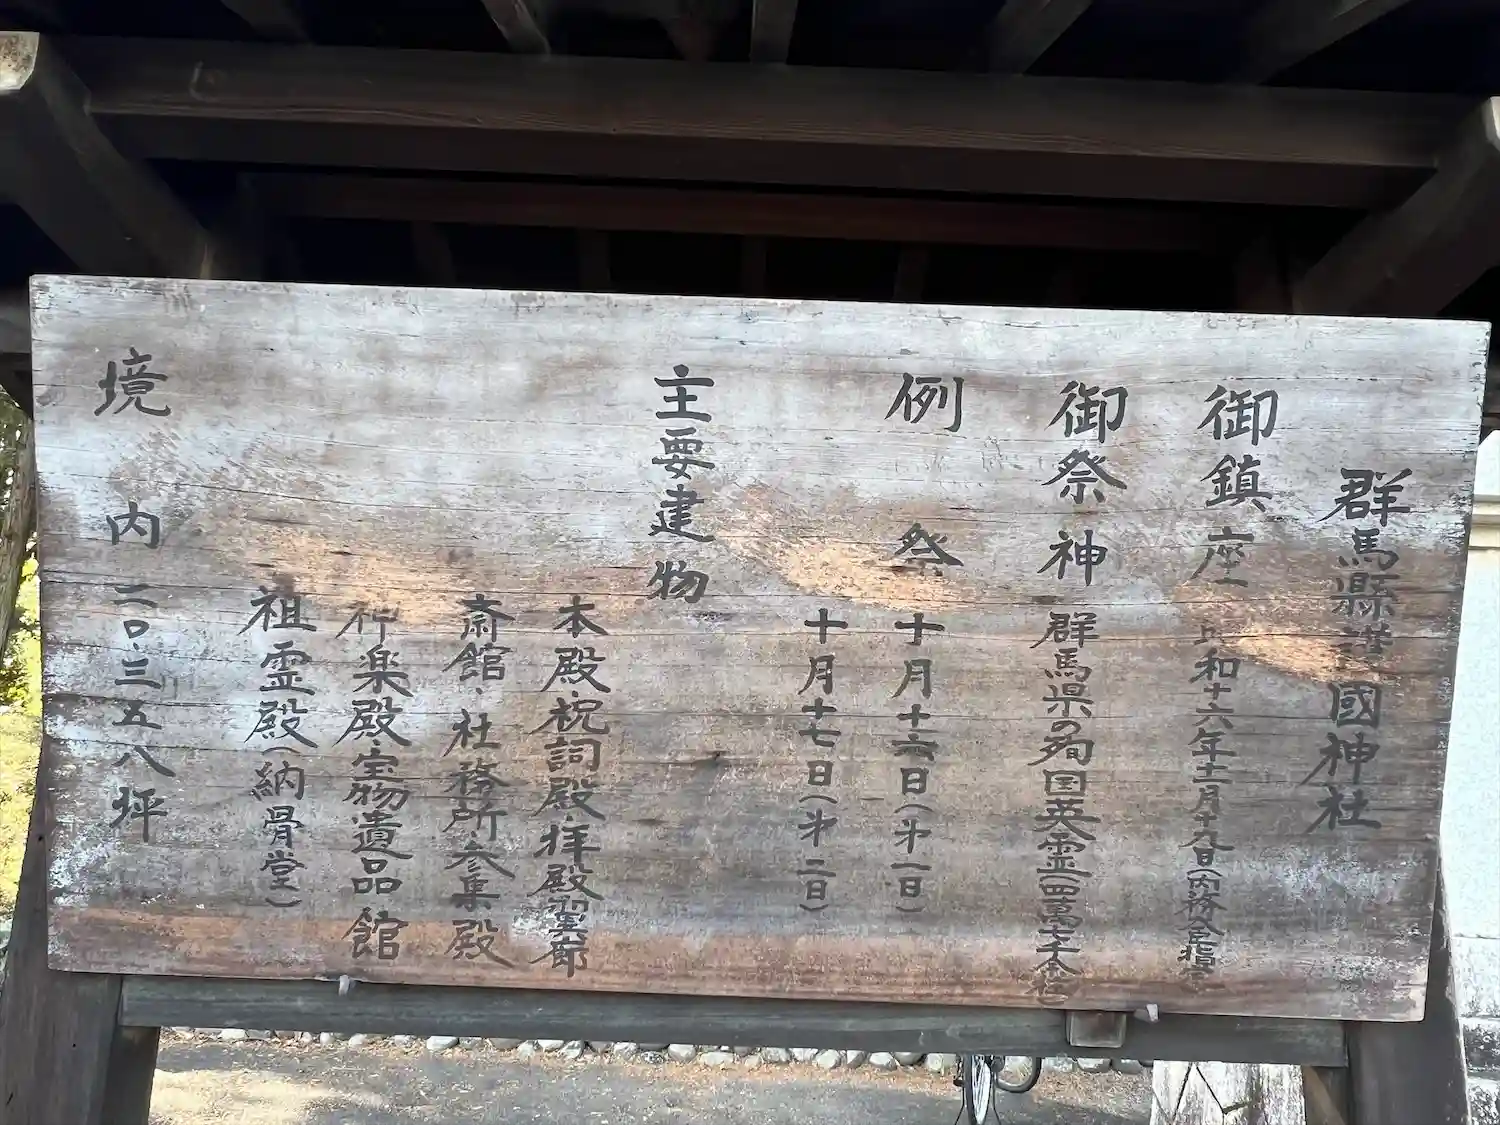 群馬縣護國神社
御鎮座 昭和十六年十一月十九日(内務大臣指定
御祭神 群馬県の殉国英霊(四萬七千余柱
例祭 十月十六日(才一日)
十月十七日(才二日)
主要建物
本殿・祝詞殿・拝殿翼廊
斎館・社務所・参集殿
神楽殿・宝物遺品館
祖霊殿(納骨堂)
境内 二〇.三五八坪